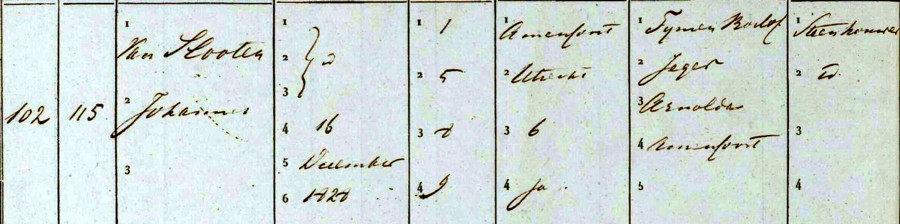 102
115
1
Van Slooten
2
Johannes
3
1
2
3
4 16
5 December
6 1828
1 1
2 5
3
4
1 Amersfoort
2 Utrecht
3 6
4 ja
1 Tymen Roelof
2 Jager
3 Arnolda
4 Amersfoort
5
1 Steenhouwer
2 id.
3
4